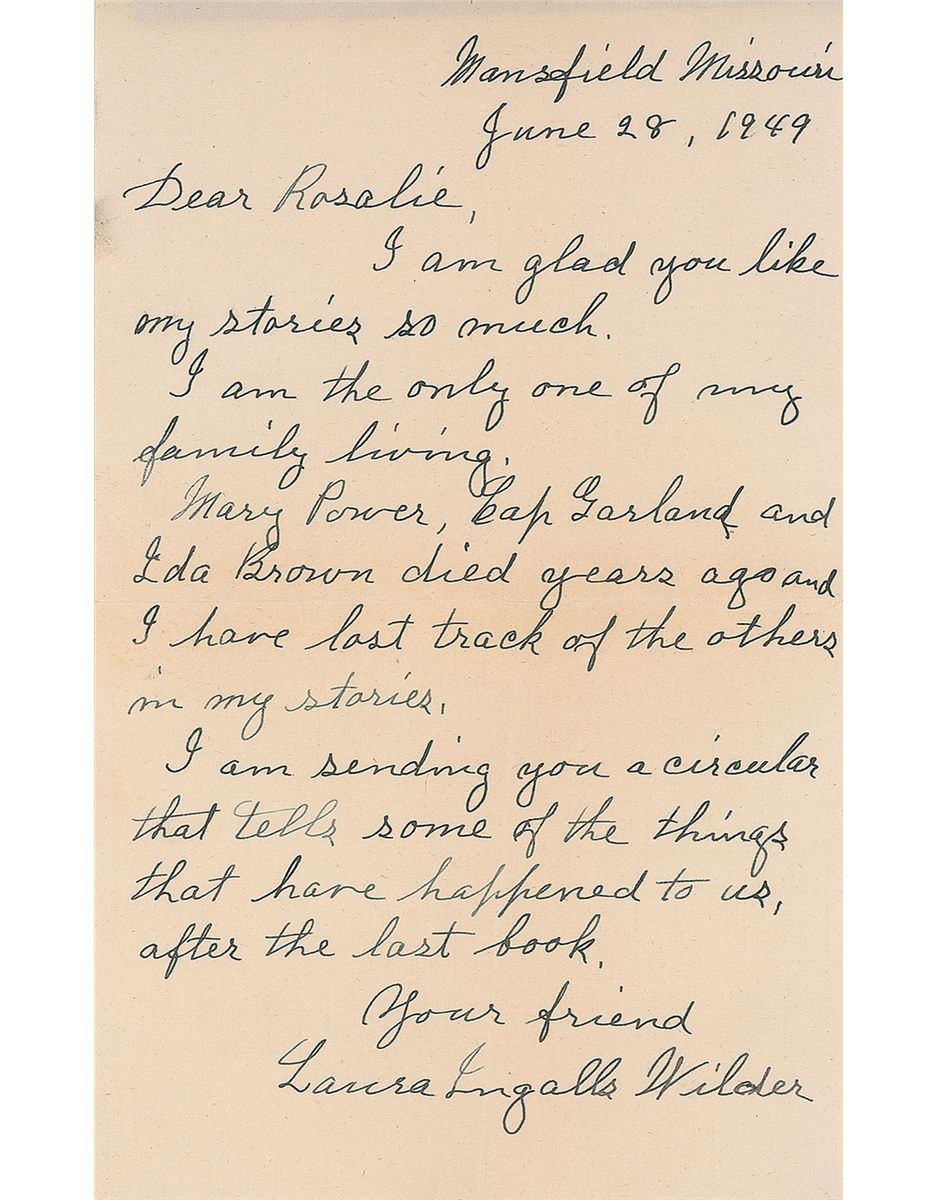 Mansfield Missouri
June 28, 1949
Dear Rosalie,
I am glad you like
my stories so much.
I am the only one of my
family living.
Mary Power, Cap Garland and
Ida Brown died years ago and
I have lost track of the others
in my stories.
I am sending you a circular
that tells some of the things
that have happened to us,
after the last book.
Your friend
Laura Ingalls Wilder